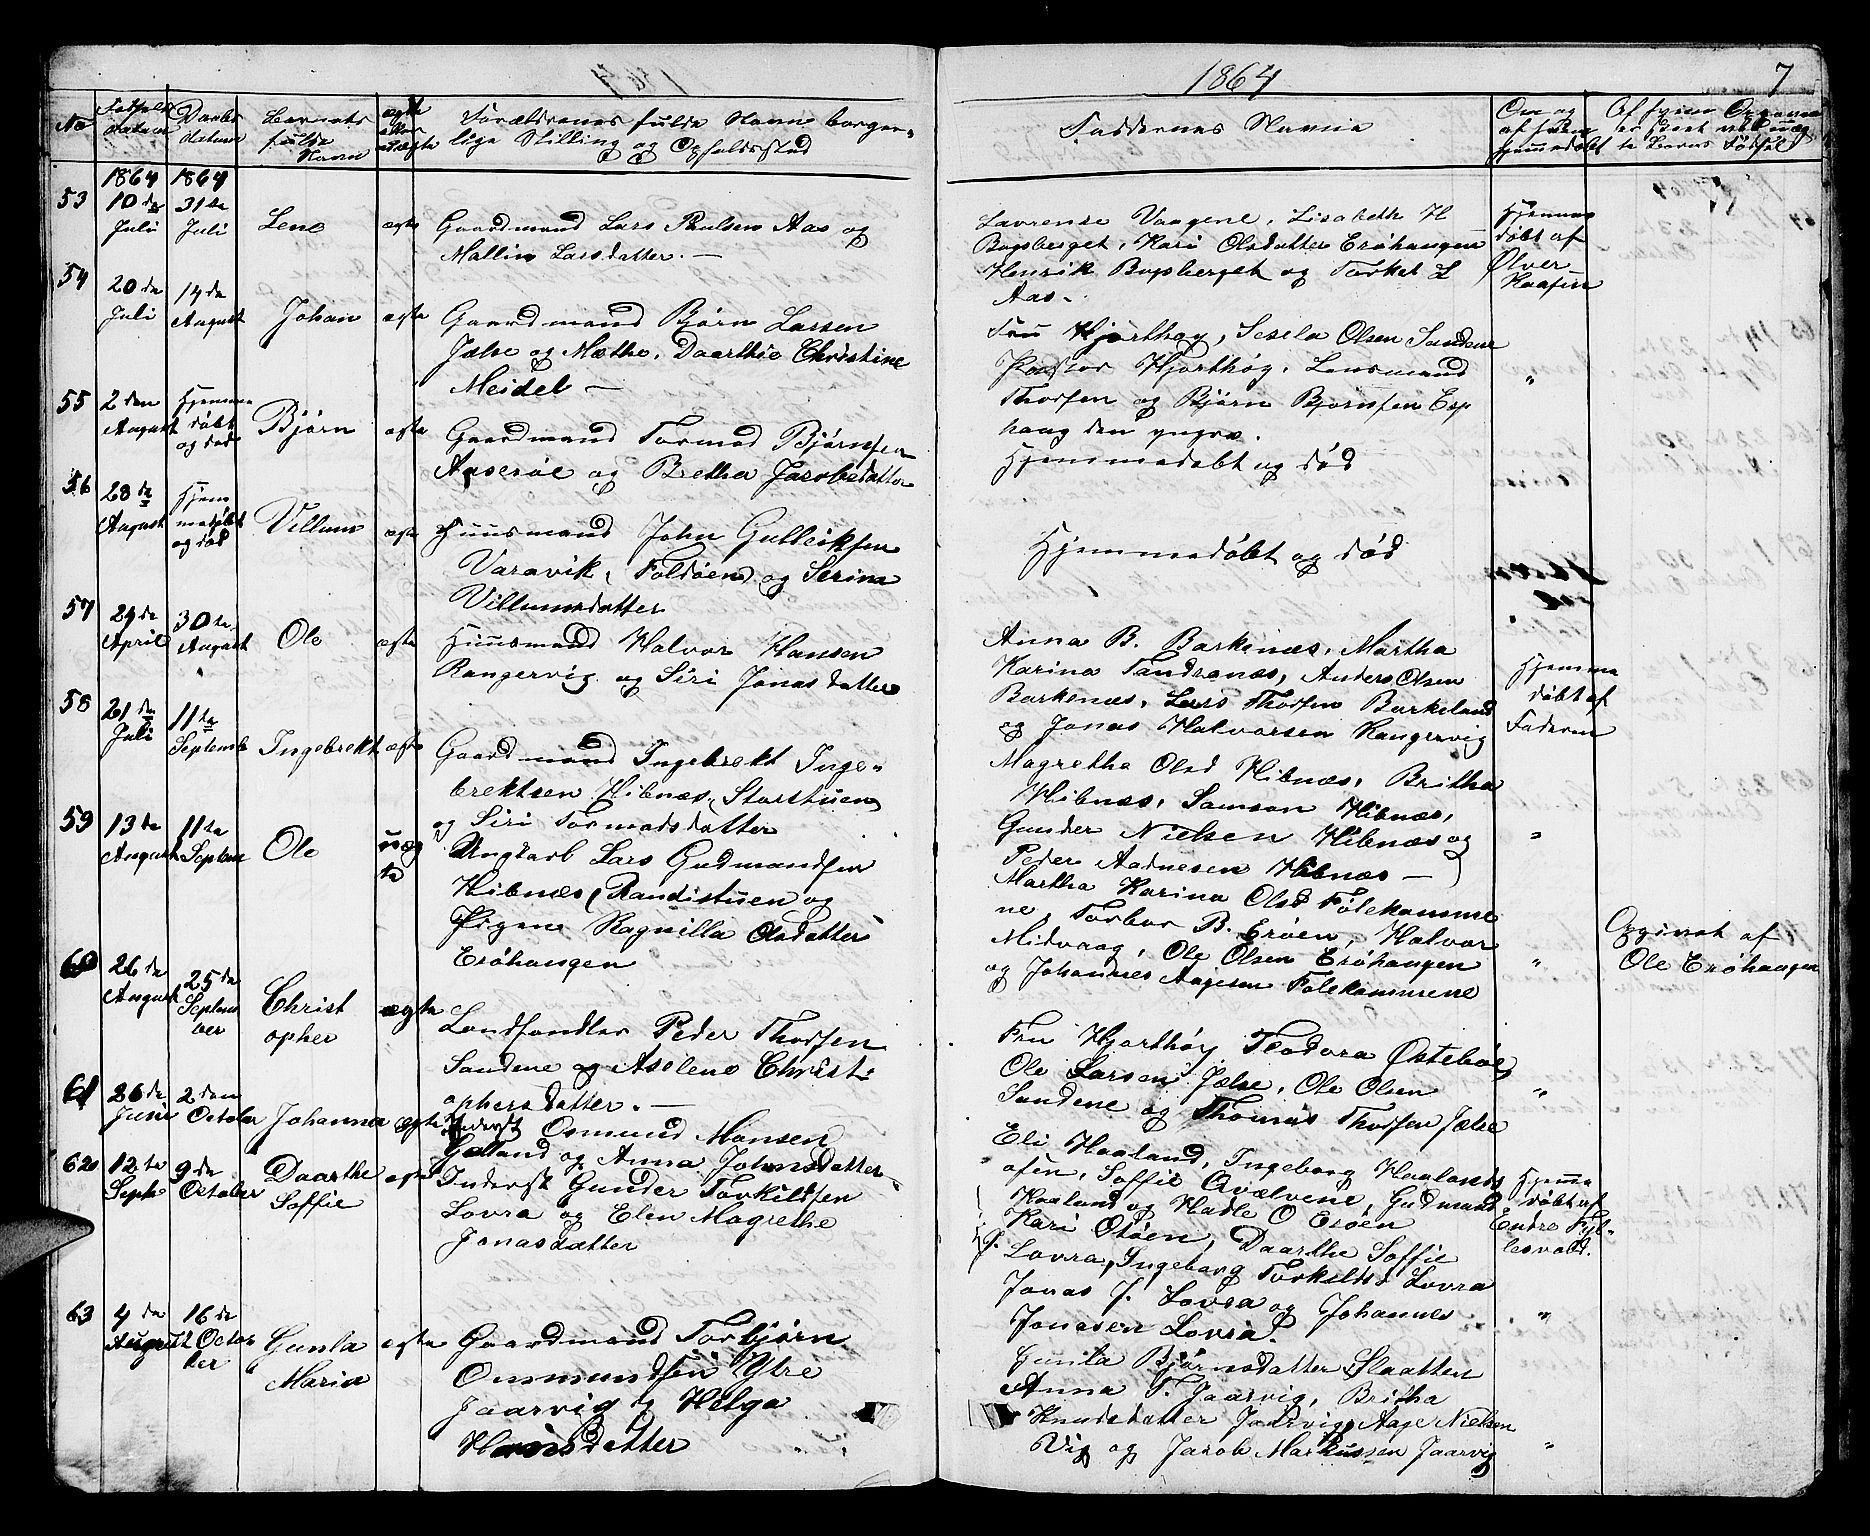 1864
7
No
Fødsels datum
Daabs datum
Barnets fulde Navn
ægte eller uægte
Forældrenes fulde Navne borger-
lige Stilling og Opholdssted
Faddernes Navne
Om og af hvem hjemmedøbt
Af hvem Opgave
1864 1864
53 10de Juli 31te Juli Lene ægte
Gaardmand Lars Paulsen Aas og
Mallin Larsdatter. —
Lavrense Vaagene, Lisabeth H
Bogsberget, Kari Olsdatter Erøhaugen
Henrik Bogsberget og Torkel L
Aas.
Hjemme døbt af Ølver
54 20de Juli 14de August Johan ægte
Gaardmand Bjørn Larsen
Jælse og Mæthe, Daarthie Christine
Meidel —
Fru Hjorthøy, Sesela Olsen Sandene
Pastor Hjorthøg, Lensmand
Thorsen og Bjørn Bjørnsen Esp
haug den yngre.
"
55 2den August Hjemme døbt og død Bjørn ægte
Gaardmand Tormod Bjørnsen
Aaserøe og Bretha Jacobsdatter
Hjemmedøbt og død
56 28de August Hjem medøbt og død Villum ægte
Huusmand John Gulleiksen
Varavik, Foldøen og Serina
Villumsdatter
Hjemmedøbt og død
57 29de April 30te August Ole ægte
Huusmand Halvor Hansen
Rangervig og Siri Jonasdatter
Anna B. Barkenæs, Martha
Karina Tandranæs, Anders Olsen
Barkenæs, Lars Thorsen Barkeland
og Jonas Halvorsen Rangervig
Hjemme døbt af Faderen
58 21de Juli 11te Septemb Ingebrekt ægte
Gaardmand Ingebrekt Inge-
brektsen Hibnæs, Storstuen
og Siri Tormodsdatter
Magretha Olsd Hibnæs, Britha
Hibnæs, Samson Hibnæs,
Gunder Nielsen Hibnæs og
Peder Aadnesen Hibnæs —
"
59 13de August 11te Septem Ole uæg te
Ungkarl Lars Gudmandsen
Hibnæs (Randistuen og
Pigen Ragnilla Olsdatter
Erøhaugen
Martha Karina Olsd Følekamme
ne, Torbor B. Erøen, Halvor
Midvaag, Ole Olsen Erøhaugen
og Johannes Aagesen Følekammene
"
Opgivet af
Ole Erøhaugen
60 26de August 25de Septem ber Christ opher ægte
Landhandler Peder Thorsen
Sandene og Aselene Christ-
ophersdatter. —
Fru Hjorthøy Teodora Østebø
Ole Larsen Jælse, Ole Olsen
Sandene og Thomas Thorsen Jælse
"
61 26de Juni 2den October Johanna ægte
Inderst Osmund Monsen
Galland og Anna Johnsdatter
Eli Haaland, Ingeborg Haalands
osen, Soffie Qvælvene, Gudmand
Haaland og Hadle O Erøen
Hjemme døbt af Endre
62 12te Septb 9de October Daarthe Soffie ægte
Inderst Gunder Torkildsen
Lovra og Elen Magrethe
Jonasdatter
Kari Otøen, Daarthe Soffie
J. Lovra, Ingeborg Torkelds. Lovra
Jonas J. Lovra og Johannes
Jonasen Lovra.
"
63 4de August 16de Octo ber Gunla Maria ægte
Gaardmand Torbjørn
Ommundsen Ytre
Jaarvig og Helga
Hansdatter
Gunla Bjørnsdatter Slaatten
Anna T. Jaarvig, Britha
Knudsdatter Jaarvig, Aage Nielsen
Vig og Jacob Markussen Jaarvig
"